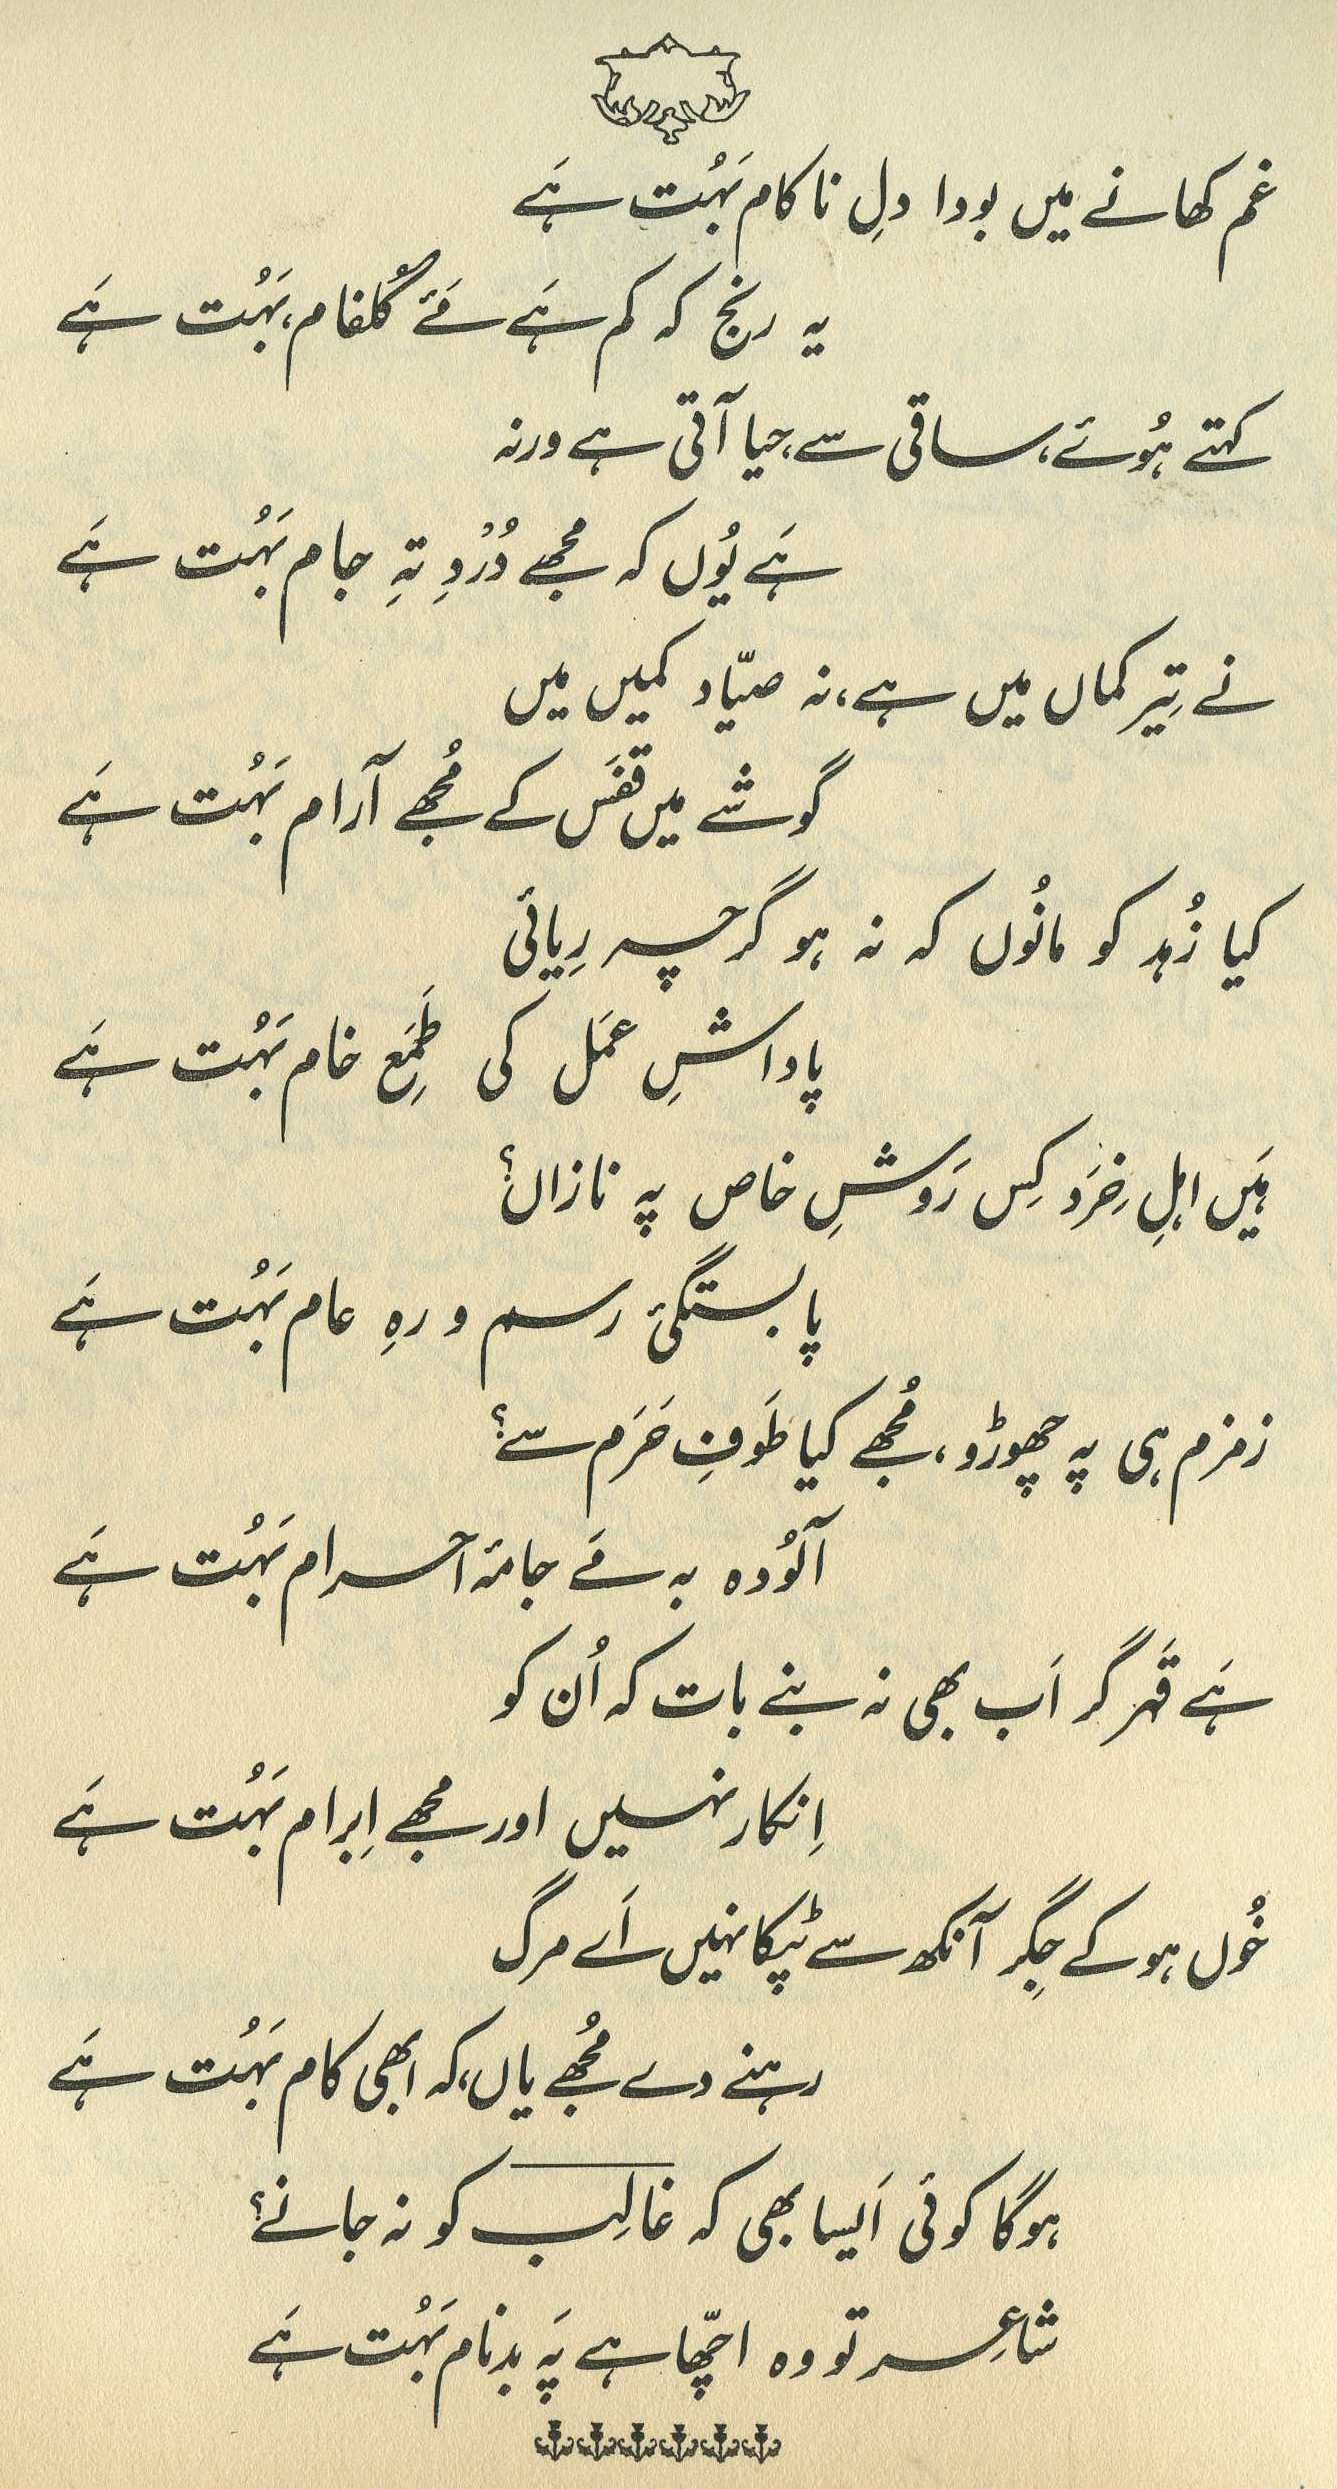 غم کھانے میں بودا دلِ ناکام بَہُت ہَے
یہ رنج کہ کم ہَے مَۓ گُلفام، بَہُت ہَے
کہتے ہُوئے، ساقی سے، حیا آتی ہے ورنہ
ہَے یُوں کہ مجھے دُرْدِ تہِ جام بَہُت ہَے
نے تِیر کماں میں ہے، نہ صیّاد کمیں میں
گوشے میں قفَس کے مُجھے آرام بَہُت ہَے
کیا زُہد کو مانُوں کہ نہ ہو گرچہ رِیائی
پاداشِ عمَل کی طَمَعِ خام بَہُت ہَے
ہَیں اہلِ خِرَد کِس رَوِشِ خاص پہ نازاں؟
پابستگیٔ رسم و رہِ عام بَہُت ہَے
زمزم ہی پہ چھوڑو، مُجھے کیا طَوفِ حَرَم سے؟
آلُودہ بہ مَے جامۂ احرام بَہُت ہَے
ہَے قَہر گر اَب بھی نہ بنے بات کہ اُن کو
اِنکار نہیں اور مجھے اِبرام بَہُت ہَے
خُوں ہو کے جِگر آنکھ سے ٹپکا نہیں اَے مرگ
رہنے دے مُجھے یاں، کہ ابھی کام بَہُت ہَے
ہوگا کوئی اَیسا بھی کہ غالِب کو نہ جانے؟
شاعِر تو وہ اچّھا ہے پَہ بدنام بَہُت ہَے